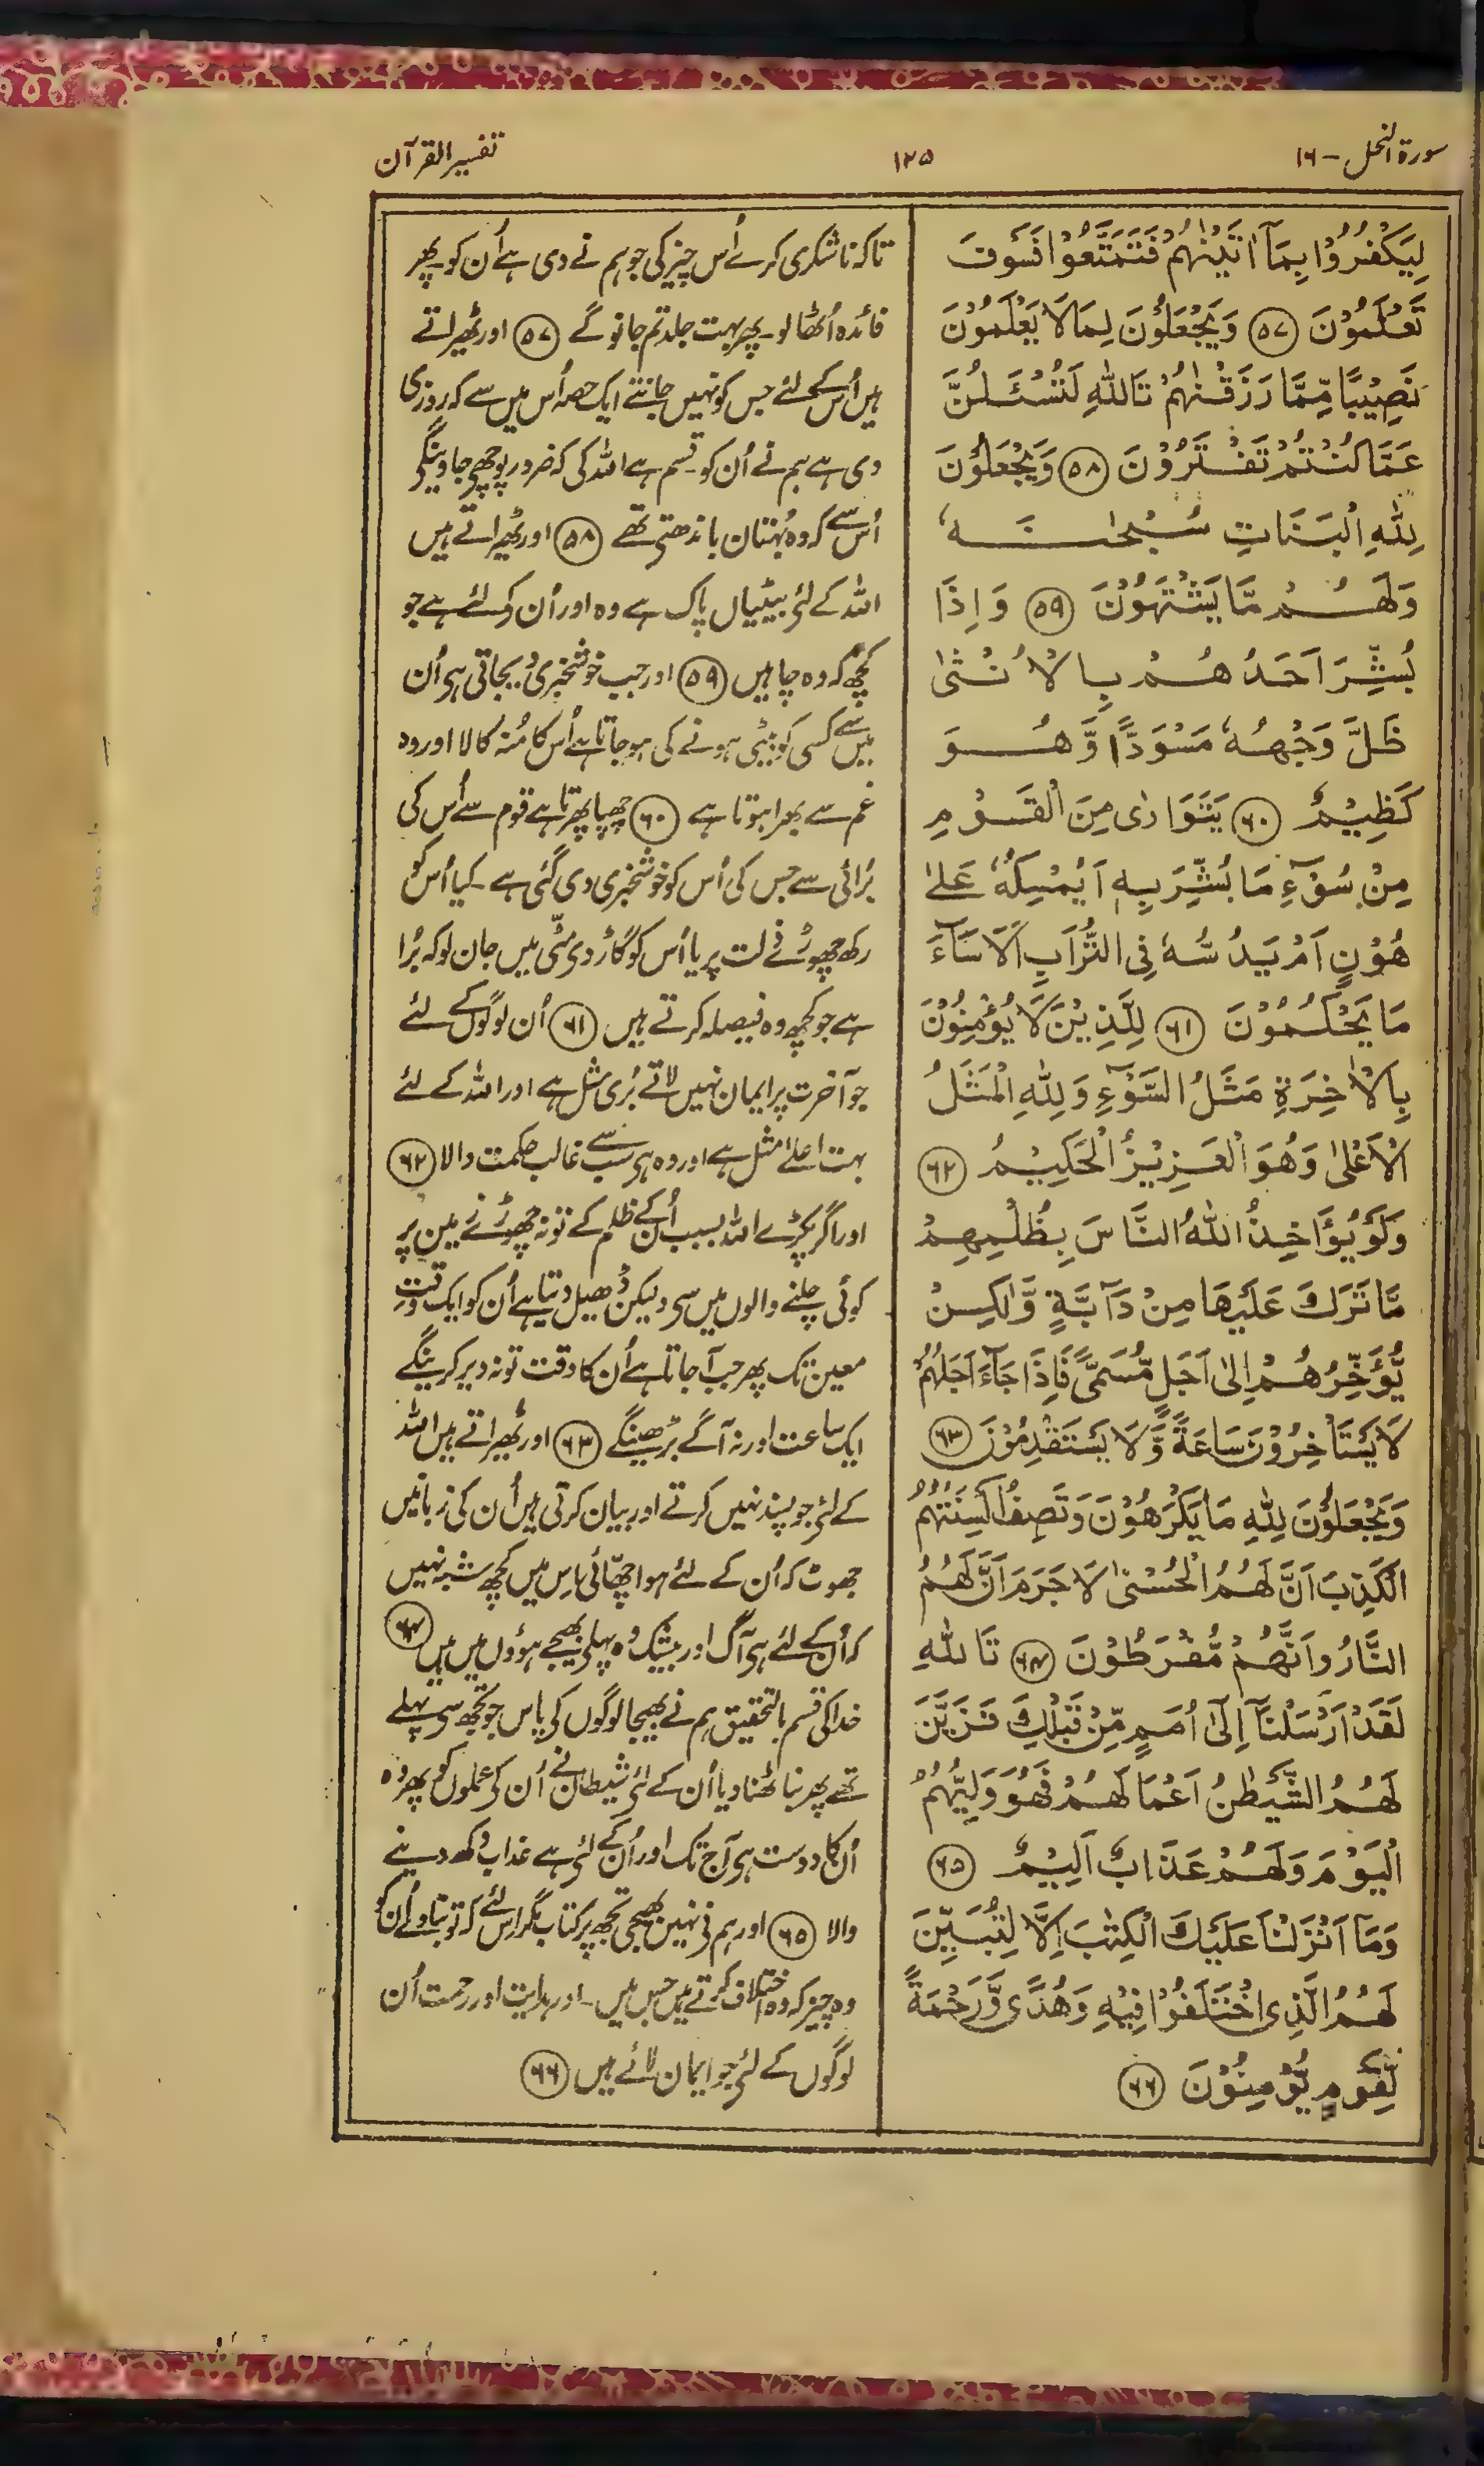 سورة النحل - ۱۶
۱۲۵
تفسیر القرآن
لِيَكْفُرُوْا بِمَآ اٰتَيْنٰهُمْ فَتَمَتَّعُوْا فَسَوْفَ
تَعْلَمُوْنَ ۵۷ وَيَجْعَلُوْنَ لِمَا لَا يَعْلَمُوْنَ
نَصِيْبًا مِّمَّا رَزَقْنٰهُمْ تَاللّٰهِ لَتُسْـَٔلُنَّ
عَمَّا كُنْتُمْ تَفْتَرُوْنَ ۵۸ وَيَجْعَلُوْنَ
لِلّٰهِ الْبَنَاتِ سُبْحٰنَهٗ
وَلَهُمْ مَّا يَشْتَهُوْنَ ۵۹ وَاِذَا
بُشِّرَ اَحَدُهُمْ بِالْاُنْثٰى
ظَلَّ وَجْهُهٗ مُسْوَدًّا وَّهُوَ
كَظِيْمٌ ۶۰ يَتَوَارٰى مِنَ الْقَوْمِ
مِنْ سُوْٓءِ مَا بُشِّرَ بِهٖ اَيُمْسِكُهٗ عَلٰى
هُوْنٍ اَمْ يَدُسُّهٗ فِى التُّرَابِ اَلَا سَآءَ
مَا يَحْكُمُوْنَ ۶۱ لِلَّذِيْنَ لَا يُؤْمِنُوْنَ
بِالْاٰخِرَةِ مَثَلُ السَّوْءِ وَلِلّٰهِ الْمَثَلُ
الْاَعْلٰى وَهُوَ الْعَزِيْزُ الْحَكِيْمُ ۶۲
وَلَوْ يُؤَاخِذُ اللّٰهُ النَّاسَ بِظُلْمِهِمْ
مَّا تَرَكَ عَلَيْهَا مِنْ دَآبَّةٍ وَّلٰكِنْ
يُّؤَخِّرُهُمْ اِلٰٓى اَجَلٍ مُّسَمًّى فَاِذَا جَآءَ اَجَلُهُمْ
لَا يَسْتَاْخِرُوْنَ سَاعَةً وَّلَا يَسْتَقْدِمُوْنَ ۶۳
وَيَجْعَلُوْنَ لِلّٰهِ مَا يَكْرَهُوْنَ وَتَصِفُ اَلْسِنَتُهُمُ
الْكَذِبَ اَنَّ لَهُمُ الْحُسْنٰى لَا جَرَمَ اَنَّ لَهُمُ
النَّارَ وَاَنَّهُمْ مُّفْرَطُوْنَ ۶۴ تَاللّٰهِ
لَقَدْ اَرْسَلْنَآ اِلٰٓى اُمَمٍ مِّنْ قَبْلِكَ فَزَيَّنَ
لَهُمُ الشَّيْطٰنُ اَعْمَالَهُمْ فَهُوَ وَلِيُّهُمُ
الْيَوْمَ وَلَهُمْ عَذَابٌ اَلِيْمٌ ۶۵
وَمَآ اَنْزَلْنَا عَلَيْكَ الْكِتٰبَ اِلَّا لِتُبَيِّنَ
لَهُمُ الَّذِى اخْتَلَفُوْا فِيْهِ وَهُدًى وَّرَحْمَةً
لِّقَوْمٍ يُّؤْمِنُوْنَ ۶۶
تاکہ ناشکری کرے اُس چیز کی جو ہم نے دی ہے اُن کو۔ پھر
فائدہ اُٹھالو۔ پھر بہت جلد تم جانو گے ۵۷ اور ٹھیراتے
ہیں اُس کے لئے جس کو نہیں جانتے ایک حصہ اُس میں سے کہ روزی
دی ہے ہم نے اُن کو۔ قسم ہے اللہ کی کہ ضرور پوچھے جاوینگے
اُس سے کہ وہ بُہتان باندھتے تھے ۵۸ اور ٹھیراتے ہیں
اللہ کے لئے بیٹیاں پاک ہے وہ اور اُن کے لئے ہے جو
کچھ کہ وہ چاہیں ۵۹ اور جب خوشخبری دیجاتی ہی اُن
میں سے کسی کو بیٹی ہونے کی ہو جاتا ہے اُس کا مُنہ کالا اور وہ
غم سے بھرا ہوتا ہے ۶۰ چھپا پھرتا ہے قوم سے اُس کی
بُرائی سے جس کی اُس کو خوشخبری دی گئی ہے۔ کیا اُس کو
رکھ چھوڑے ذلت پر یا اُس کو گاڑ دی مٹی میں جان لو کہ بُرا
ہے جو کچھ وہ فیصلہ کرتے ہیں ۶۱ اُن لوگوں کے لئے
جو آخرت پر ایمان نہیں لاتے بُری مثل ہے اور اللہ کے لئے
بہت اعلےٰ مثل ہے اور وہ ہی سب سے غالب حکمت والا ۶۲
اور اگر پکڑے اللہ بسبب اُن کے ظلم کے تو نہ چھوڑے زمین پر
کوئی چلنے والوں میں سی ولیکن ڈھیل دیتا ہے اُن کو ایک وقت
معین تک پھر جب آ جاتا ہے اُن کا وقت تو نہ دیر کرینگے
ایک ساعت اور نہ آگے بڑھینگے ۶۳ اور ٹھیراتے ہیں اللہ
کے لئے جو پسند نہیں کرتے اور بیان کرتی ہیں اُن کی زبانیں
جھوٹ کہ اُن کے لئے ہو اچھائی۔ اس میں کچھ شبہ نہیں
کہ اُن کے لئے ہی آگ اور بیشک وہ پہلے بھیجے ہوؤں میں ہیں ۶۴
خدا کی قسم بالتحقیق ہم نے بھیجا لوگوں کی پاس جو تجھ سی پہلے
تھے پھر بنا ٹھنا دیا اُن کے لئے شیطان نے اُن کی عملوں کو پھر وہ
اُن کا دوست ہی آج تک اور اُن کے لئے ہے عذاب دکھ دینے
والا ۶۵ اور ہم نی نہیں بھیجی تجھ پر کتاب مگر اس لئے کہ تو بتا دے اُن کو
وہ چیز کہ وہ اختلاف کرتے ہیں جس میں۔ اور ہدایت اور رحمت اُن
لوگوں کے لئے جو ایمان لائے ہیں ۶۶